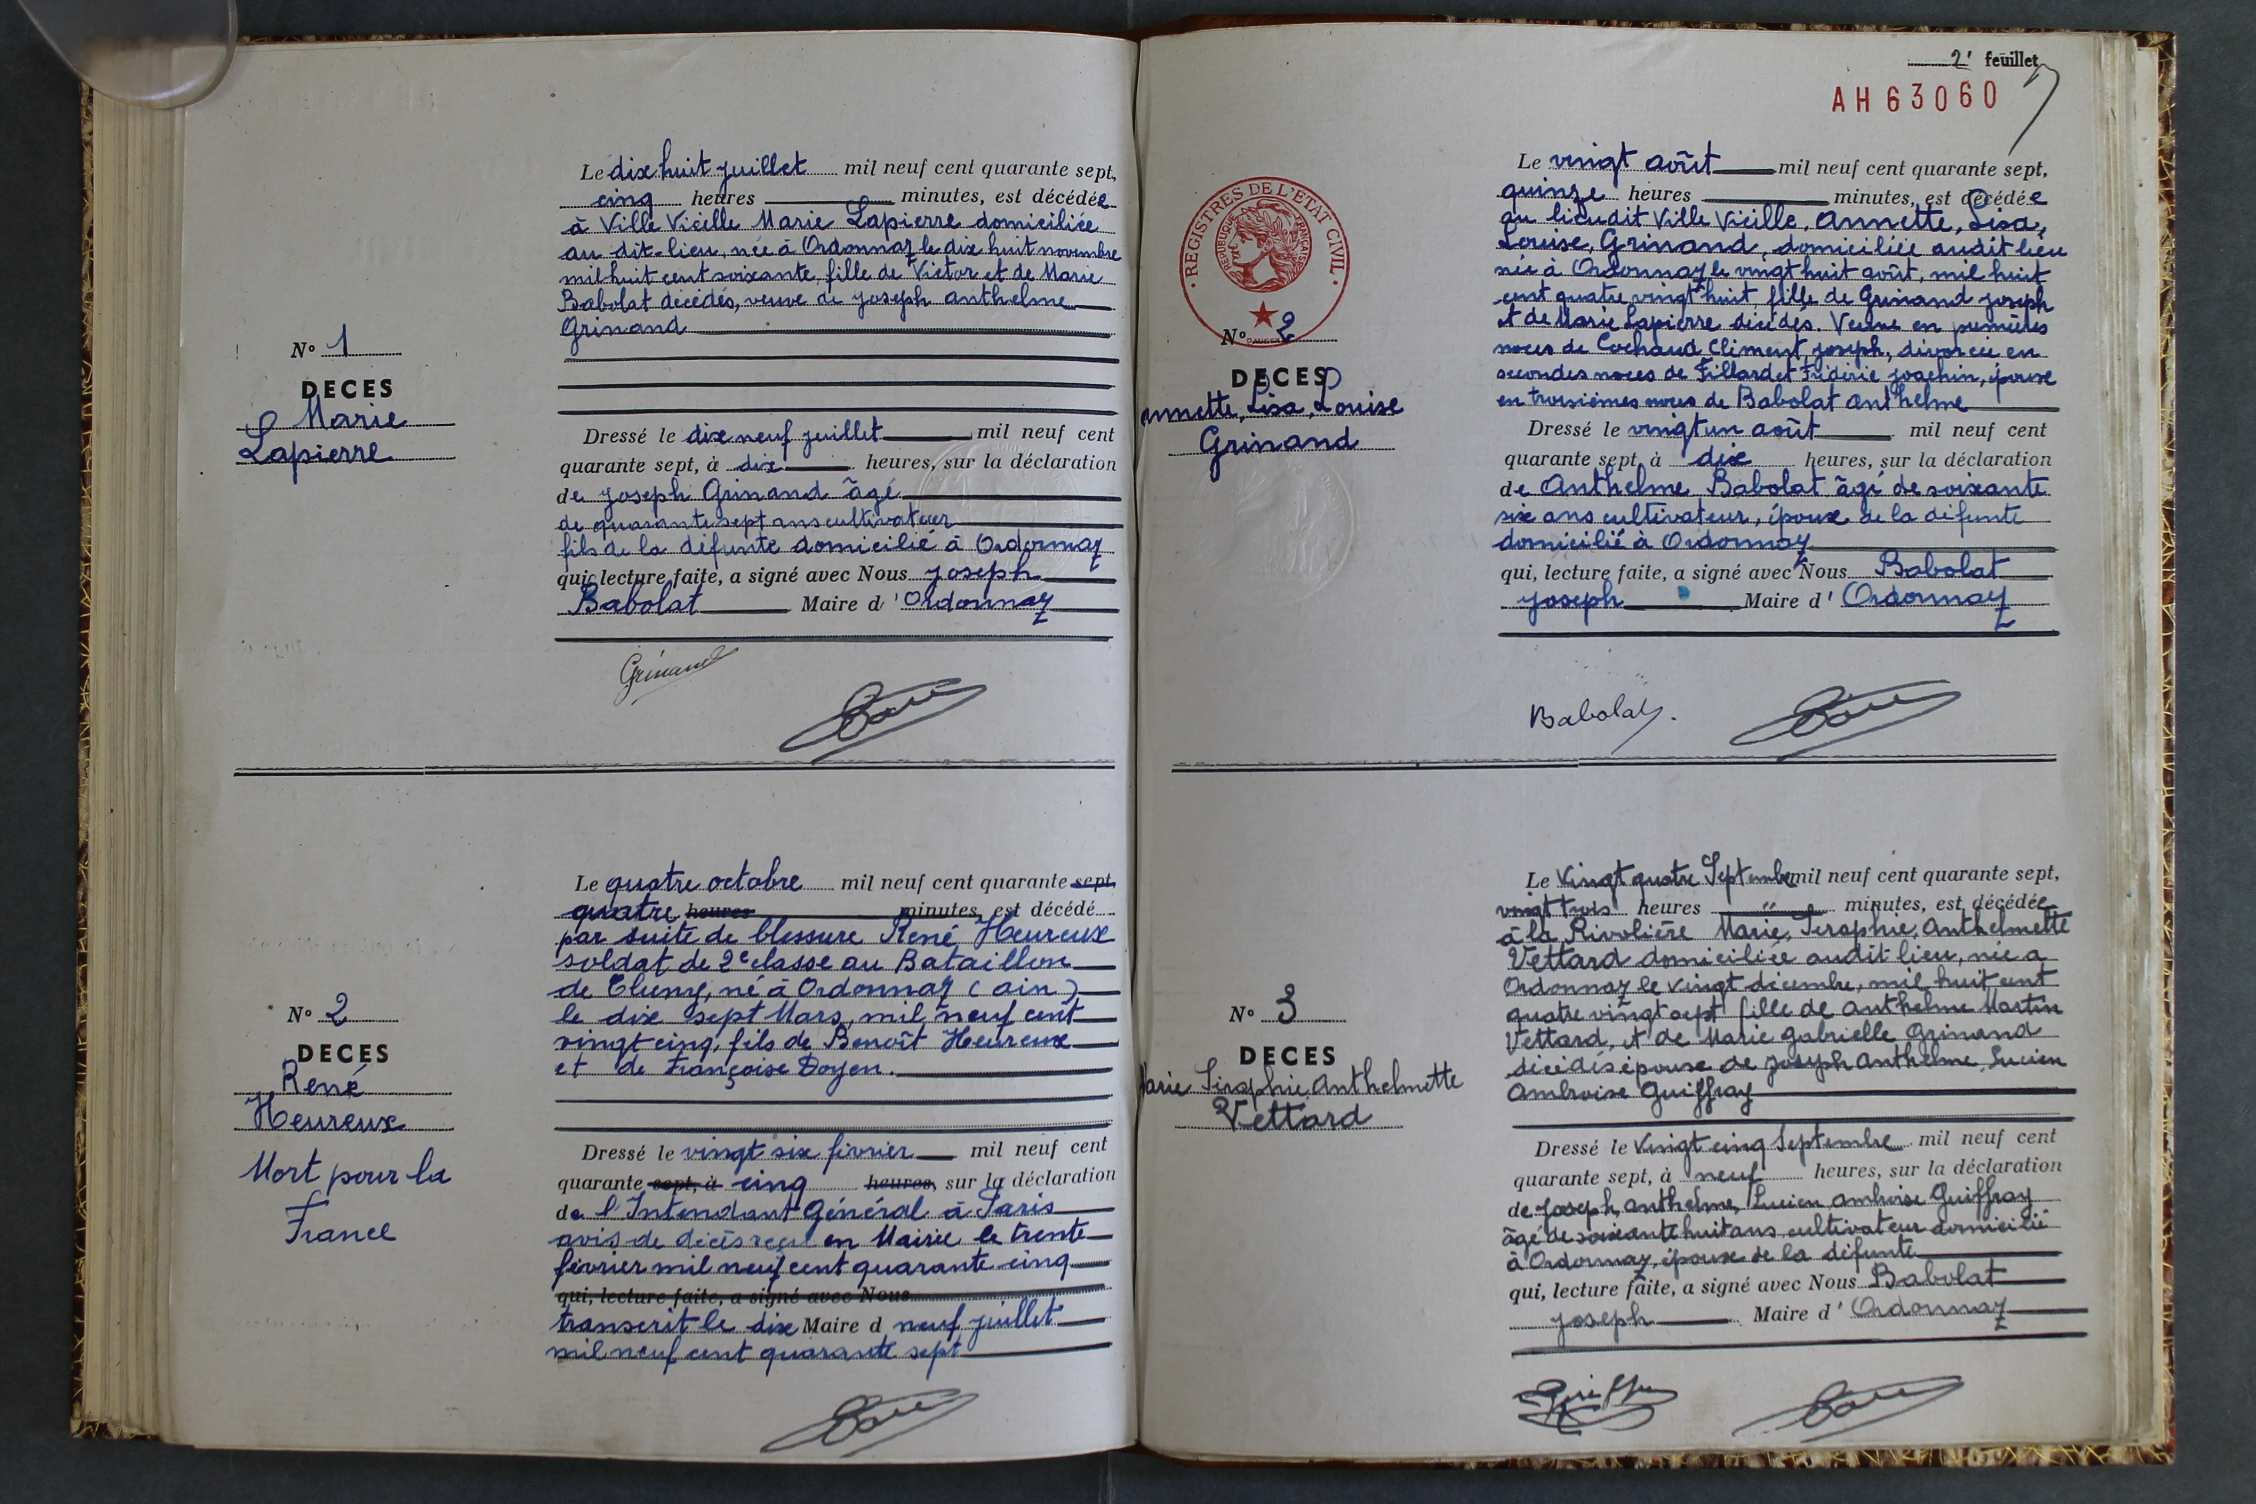 Le dix huit juillet mil neuf cent quarante sept,
cinq heures minutes, est décédée
à Ville Vieille Marie Lapierre domiciliée
au dit lieu, née à Ordonnaz le dix huit novembre
mil huit cent soixante, fille de Victor et de Marie
Babolat décédés, veuve de Joseph Anthelme
Grinand
N° 1
DECES
Marie
Lapierre
Dressé le dix neuf juillet mil neuf cent
quarante sept, à dix heures, sur la déclaration
de Joseph Grinand âgé
de quarante sept ans cultivateur
fils de la défunte domicilié à Ordonnaz
qui, lecture faite, a signé avec Nous Joseph
Babolat Maire d' Ordonnaz
Grinand
Le quatre octobre mil neuf cent quarante sept
quatre heures minutes, est décédé
par suite de blessure René Heureux
soldat de 2e classe au Bataillon
de Cluny, né à Ordonnaz (Ain)
le dix sept Mars, mil neuf cent
vingt cinq, fils de Benoît Heureux
et de Françoise Doyen.
N° 2
DECES
René
Heureux
Mort pour la
France
Dressé le vingt six février mil neuf cent
quarante sept, à cinq heures, sur la déclaration
de l'Intendant Général à Paris
avis de décès reçu en Mairie le trente
février mil neuf cent quarante cinq
qui, lecture faite, a signé avec Nous
transcrit le dix Maire d neuf juillet
mil neuf cent quarante sept
2e feuillet
AH63060
Le vingt août mil neuf cent quarante sept,
quinze heures minutes, est décédée
au lieudit Ville Vieille, Annette, Lisa,
Louise, Grinand, domiciliée audit lieu
née à Ordonnaz le vingt huit août, mil huit
cent quatre vingt huit, fille de Grinand Joseph
et de Marie Lapierre décédés. Veuve en premières
noces de Cochaud Climent, Joseph, divorcée en
secondes noces de Fillardet Frédéric Joachin, épouse
en troisièmes noces de Babolat Anthelme
REGISTRES DE L'ETAT CIVIL
REPUBLIQUE FRANÇAISE
N° 2
DECES
Annette, Lisa, Louise
Grinand
Dressé le vingt un août mil neuf cent
quarante sept, à dix heures, sur la déclaration
de Anthelme Babolat âgé de soixante
six ans cultivateur, époux de la défunte
domicilié à Ordonnaz
qui, lecture faite, a signé avec Nous Babolat
Joseph Maire d' Ordonnaz
Babolat
Le Vingt quatre Septembre mil neuf cent quarante sept,
vingt trois heures " minutes, est décédée
à la Rivolière Marie, Séraphie, Anthelmette
Vettard domiciliée audit lieu, née a
Ordonnaz le vingt décembre, mil huit cent
quatre vingt sept fille de Anthelme Martin
Vettard, et de Marie Gabrielle Grinand
décédés épouse de Joseph Anthelme, Lucien
Ambroise Guiffray
N° 3
DECES
Marie Séraphie Anthelmette
Vettard
Dressé le Vingt cinq Septembre mil neuf cent
quarante sept, à neuf heures, sur la déclaration
de Joseph, Anthelme, Lucien Ambroise Guiffray
âgé de soixante huit ans cultivateur domicilié
à Ordonnaz, époux de la défunte
qui, lecture faite, a signé avec Nous Babolat
Joseph Maire d' Ordonnaz